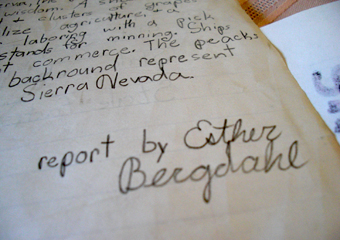 wisdom. A small
+ clusters of grapes
lize agriculture, + a
laboring with a pick
stands for minning. Ships
t commerce. The peacks
backround represent
Sierra Nevada.
report by Esther
Bergdahl